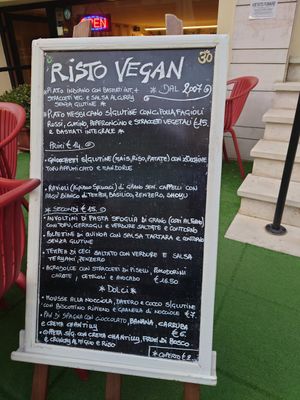 OPEN
ॐ
RISTO VEGAN
* PIATTO INDIANO CON BASMATI INT. +
SPEZZATI VEG. E SALSA AL CURRY
SENZA GLUTINE *
* DAL 2007 *
* PIATTO MESSICANO S/GLUTINE CON CIPOLLA, FAGIOLI
ROSSI, CUMINO, PEPERONCINO E STRACCETTI VEGETALI €15
E BASMATI INTEGRALE *
PRIMI €14
- GNOCCHETTI S/GLUTINE (MAIS, RISO, PATATE) CON
TOFU AFFUMICATO E MANDORLE
- RAVIOLI (RIPIENO SPINACI) DI GRANO SEN. CAPPELLI CON
RAGÙ BIANCO DI TEMPEH, BASILICO, ZENZERO, SHOYU
* SECONDI €15 *
- INVOLTINI DI PASTA SFOGLIA DI GRANO
CON TOFU, GERMOGLI E VERDURE SALTATE E CONTORNO
- POLPETTINE DI QUINOA CON SALSA TARTARA E CONTORNO
SENZA GLUTINE
- TEMPEH DI CECI SALTATO CON VERDURE E SALSA
TERIYAKI, ZENZERO
- AGRODOLCE CON STRACCETTI DI PISELLI, POMODORINI
CAROTE, CETRIOLI E AVOCADO €16.50
* DOLCI *
- MOUSSE ALLA NOCCIOLA, DATTERO E COCCO S/GLUTINE
CON BISCOTTINO RIPIENO E GRANELLA DI NOCCIOLE €7
- PAN DI SPAGNA CON CIOCCOLATO, BANANA, CARRUBA
E CREMA CHANTILLY €6
- COPPETTA S/G CON CREMA CHANTILLY, FRUTTI DI BOSCO
E CRUNCHY AL MIGLIO E RISO
* COPERTO € 2